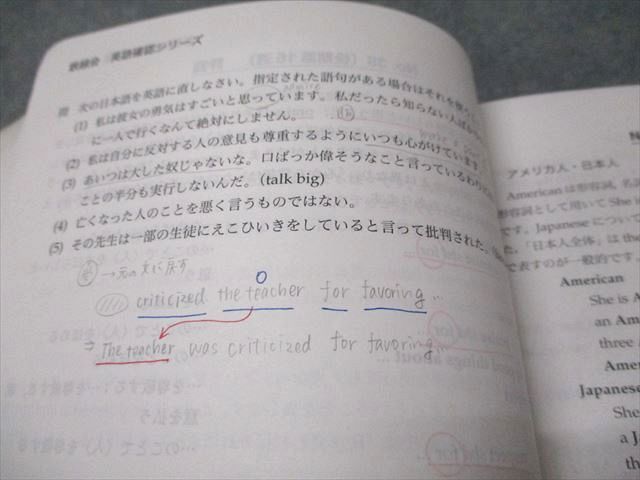 鉄緑会 英語確認シリーズ
問 次の日本語を英語に直しなさい。指定された語句がある場合はそれを使う
(1) 私は彼女の勇気はすごいと思っています。私だったら知らない人ばか
に一人で行くなんて絶対にしません。
(2) 私は自分に反対する人の意見も尊重するようにいつも心がけています
(3) あいつは大した奴じゃないな。口ばっか偉そうなこと言っているわり
ことの半分も実行しないんだ。(talk big)
(4) 亡くなった人のことを悪く言うものではない。
(5) その先生は一部の生徒にえこひいきをしていると言って批判された。
→元の文に戻す
O
criticized the teacher for favoring...
⇒ The teacher was criticized for favoring...
アメリカ人・日本人
American は形容詞、名詞
形容詞として用いて She is
す。Japanese につい
た、「日本人全体」は the
で表すのが一般的です。
American
She is A
an Am
three
Amer
Japanese
She
a J
th